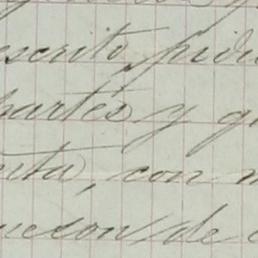 escrito, pidi
partes y q
nta, con
uccon de